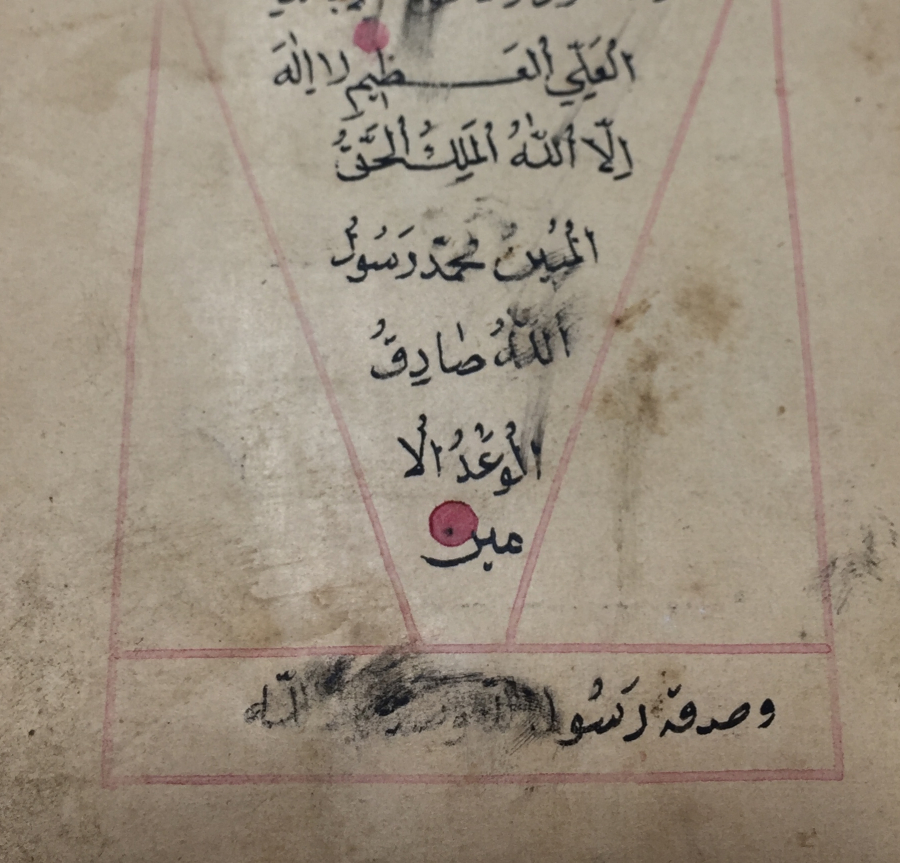 العَلِيّ العَظيمِ لا اِلٰهَ
اِلّا اللّٰهُ المَلِكُ الحَقُّ
المُبينُ محمّد رَسُولُ
اللّٰهُ صَادِقُ
الُوَعْدُ الُا
مين
وصدقة رَسُول الله